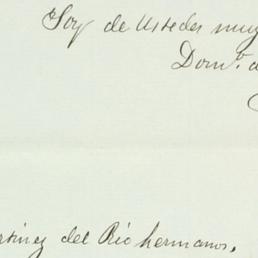 Soy de Ustedes muy
Domº. d
rtinez del Rio hermanos,